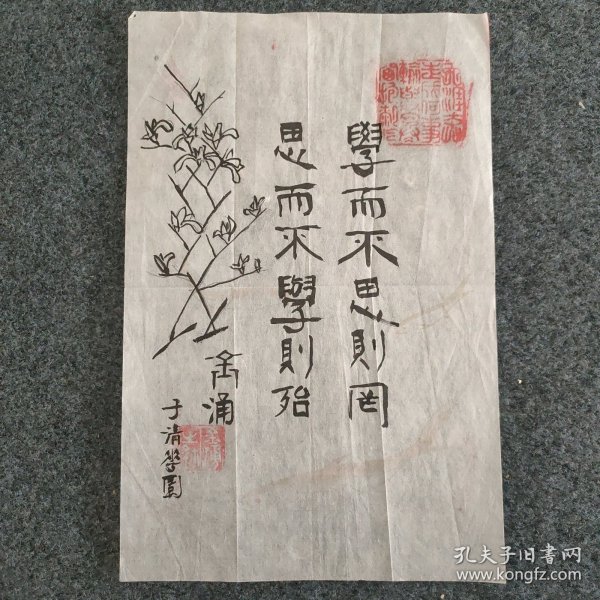 學而不思則罔
思而不學則殆
涌
于清華園
孔夫子旧書网
www.kongfz.com